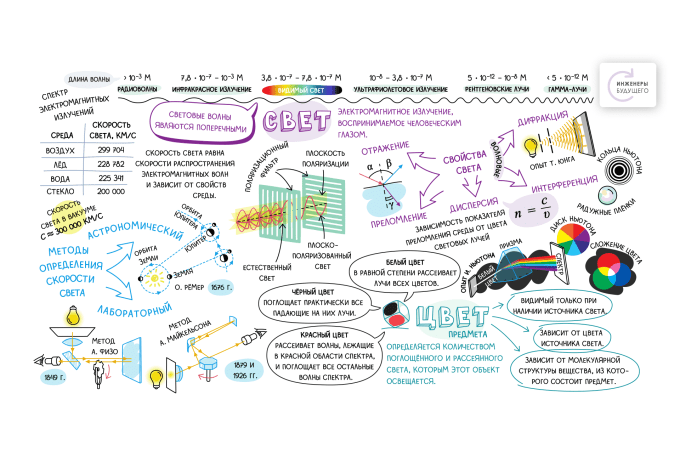 ДЛИНА ВОЛНЫ
> 10⁻³ М
7,8 · 10⁻⁷ – 10⁻³ М
3,8 · 10⁻⁷ – 7,8 · 10⁻⁷ М
10⁻⁸ – 3,8 · 10⁻⁷ М
5 · 10⁻¹² – 10⁻⁸ М
< 5 · 10⁻¹² М
РАДИОВОЛНЫ
ИНФРАКРАСНОЕ ИЗЛУЧЕНИЕ
ВИДИМЫЙ СВЕТ
УЛЬТРАФИОЛЕТОВОЕ ИЗЛУЧЕНИЕ
РЕНТГЕНОВСКИЕ ЛУЧИ
ГАММА-ЛУЧИ
ИНЖЕНЕРЫ
БУДУЩЕГО
СПЕКТР
ЭЛЕКТРОМАГНИТНЫХ
ИЗЛУЧЕНИЙ
СВЕТОВЫЕ ВОЛНЫ
ЯВЛЯЮТСЯ ПОПЕРЕЧНЫМИ
СВЕТ
ЭЛЕКТРОМАГНИТНОЕ ИЗЛУЧЕНИЕ,
ВОСПРИНИМАЕМОЕ ЧЕЛОВЕЧЕСКИМ
ГЛАЗОМ.
СРЕДА
СКОРОСТЬ
СВЕТА, КМ/С
ВОЗДУХ 299 704
ЛЁД 228 782
ВОДА 225 341
СТЕКЛО 200 000
СКОРОСТЬ СВЕТА РАВНА
СКОРОСТИ РАСПРОСТРАНЕНИЯ
ЭЛЕКТРОМАГНИТНЫХ ВОЛН
И ЗАВИСИТ ОТ СВОЙСТВ
СРЕДЫ.
СКОРОСТЬ
СВЕТА В ВАКУУМЕ
C ≈ 300 000 КМ/С
ПОЛЯРИЗАЦИОННЫЙ
ФИЛЬТР
ПЛОСКОСТЬ
ПОЛЯРИЗАЦИИ
ЕСТЕСТВЕННЫЙ
СВЕТ
ПЛОСКО-
ПОЛЯРИЗОВАННЫЙ
СВЕТ
СВОЙСТВА
СВЕТА
ОТРАЖЕНИЕ
α
β
γ
ПРЕЛОМЛЕНИЕ
ВОЛНОВЫЕ
ДИФРАКЦИЯ
ОПЫТ Т. ЮНГА
КОЛЬЦА НЬЮТОНА
ИНТЕРФЕРЕНЦИЯ
РАДУЖНЫЕ ПЛЁНКИ
ДИСПЕРСИЯ
ЗАВИСИМОСТЬ ПОКАЗАТЕЛЯ
ПРЕЛОМЛЕНИЯ СРЕДЫ ОТ ЦВЕТА
СВЕТОВЫХ ЛУЧЕЙ
n = c/υ
ДИСК НЬЮТОНА
СЛОЖЕНИЕ ЦВЕТА
ОПЫТ И. НЬЮТОНА
ПРИЗМА
БЕЛЫЙ
ЦВЕТ
СПЕКТР
МЕТОДЫ
ОПРЕДЕЛЕНИЯ
СКОРОСТИ
СВЕТА
АСТРОНОМИЧЕСКИЙ
ОРБИТА
ЮПИТЕРА
ЮПИТЕР
ОРБИТА
ЗЕМЛИ
ЗЕМЛЯ
О. РЁМЕР
1676 Г.
ЛАБОРАТОРНЫЙ
МЕТОД
А. ФИЗО
1849 ГГ.
МЕТОД
А. МАЙКЕЛЬСОНА
1879 И
1926 ГГ.
БЕЛЫЙ ЦВЕТ
В РАВНОЙ СТЕПЕНИ РАССЕИВАЕТ
ЛУЧИ ВСЕХ ЦВЕТОВ.
ЧЁРНЫЙ ЦВЕТ
ПОГЛОЩАЕТ ПРАКТИЧЕСКИ ВСЕ
ПАДАЮЩИЕ НА НИХ ЛУЧИ.
КРАСНЫЙ ЦВЕТ
РАССЕИВАЕТ ВОЛНЫ, ЛЕЖАЩИЕ
В КРАСНОЙ ОБЛАСТИ СПЕКТРА,
И ПОГЛОЩАЕТ ВСЕ ОСТАЛЬНЫЕ
ВОЛНЫ СПЕКТРА.
ЦВЕТ
ПРЕДМЕТА
ОПРЕДЕЛЯЕТСЯ КОЛИЧЕСТВОМ
ПОГЛОЩЁННОГО И РАССЕЯННОГО
СВЕТА, КОТОРЫМ ЭТОТ ОБЪЕКТ
ОСВЕЩАЕТСЯ.
ВИДИМЫЙ ТОЛЬКО ПРИ
НАЛИЧИИ ИСТОЧНИКА СВЕТА.
ЗАВИСИТ ОТ ЦВЕТА
ИСТОЧНИКА СВЕТА.
ЗАВИСИТ ОТ МОЛЕКУЛЯРНОЙ
СТРУКТУРЫ ВЕЩЕСТВА, ИЗ КОТО-
РОГО СОСТОИТ ПРЕДМЕТ.